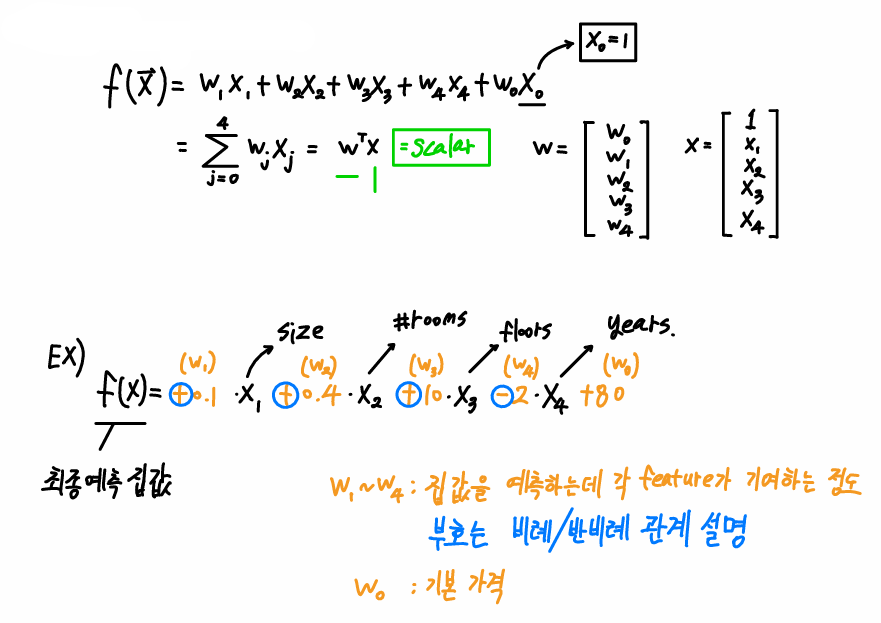 x₀ = 1
f(x⃗) = w₁x₁ + w₂x₂ + w₃x₃ + w₄x₄ + w₀x₀
= ∑_{j=0}^{4} wⱼxⱼ = wᵀx = scalar
w = [w₀ w₁ w₂ w₃ w₄]
x = [1 x₁ x₂ x₃ x₄]
size #rooms floors years.
EX)
(w₁) (w₂) (w₃) (w₄) (w₀)
f(x) = +0.1 ·x₁ +0.4 ·x₂ +10 ·x₃ -2 ·x₄ +80
최종예측 집값
w₁~w₄ : 집값을 예측하는데 각 feature가 기여하는 정도
부호는 비례/반비례 관계 설명
w₀ : 기본 가격